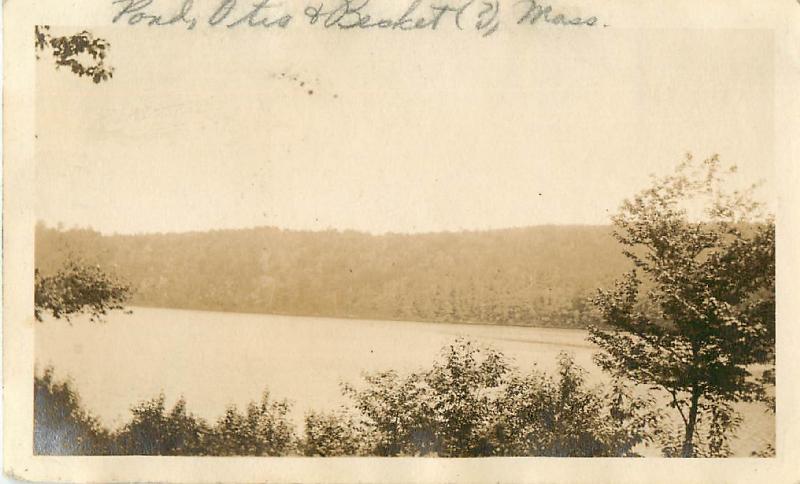 Pond, Otis & Becket (?), Mass.